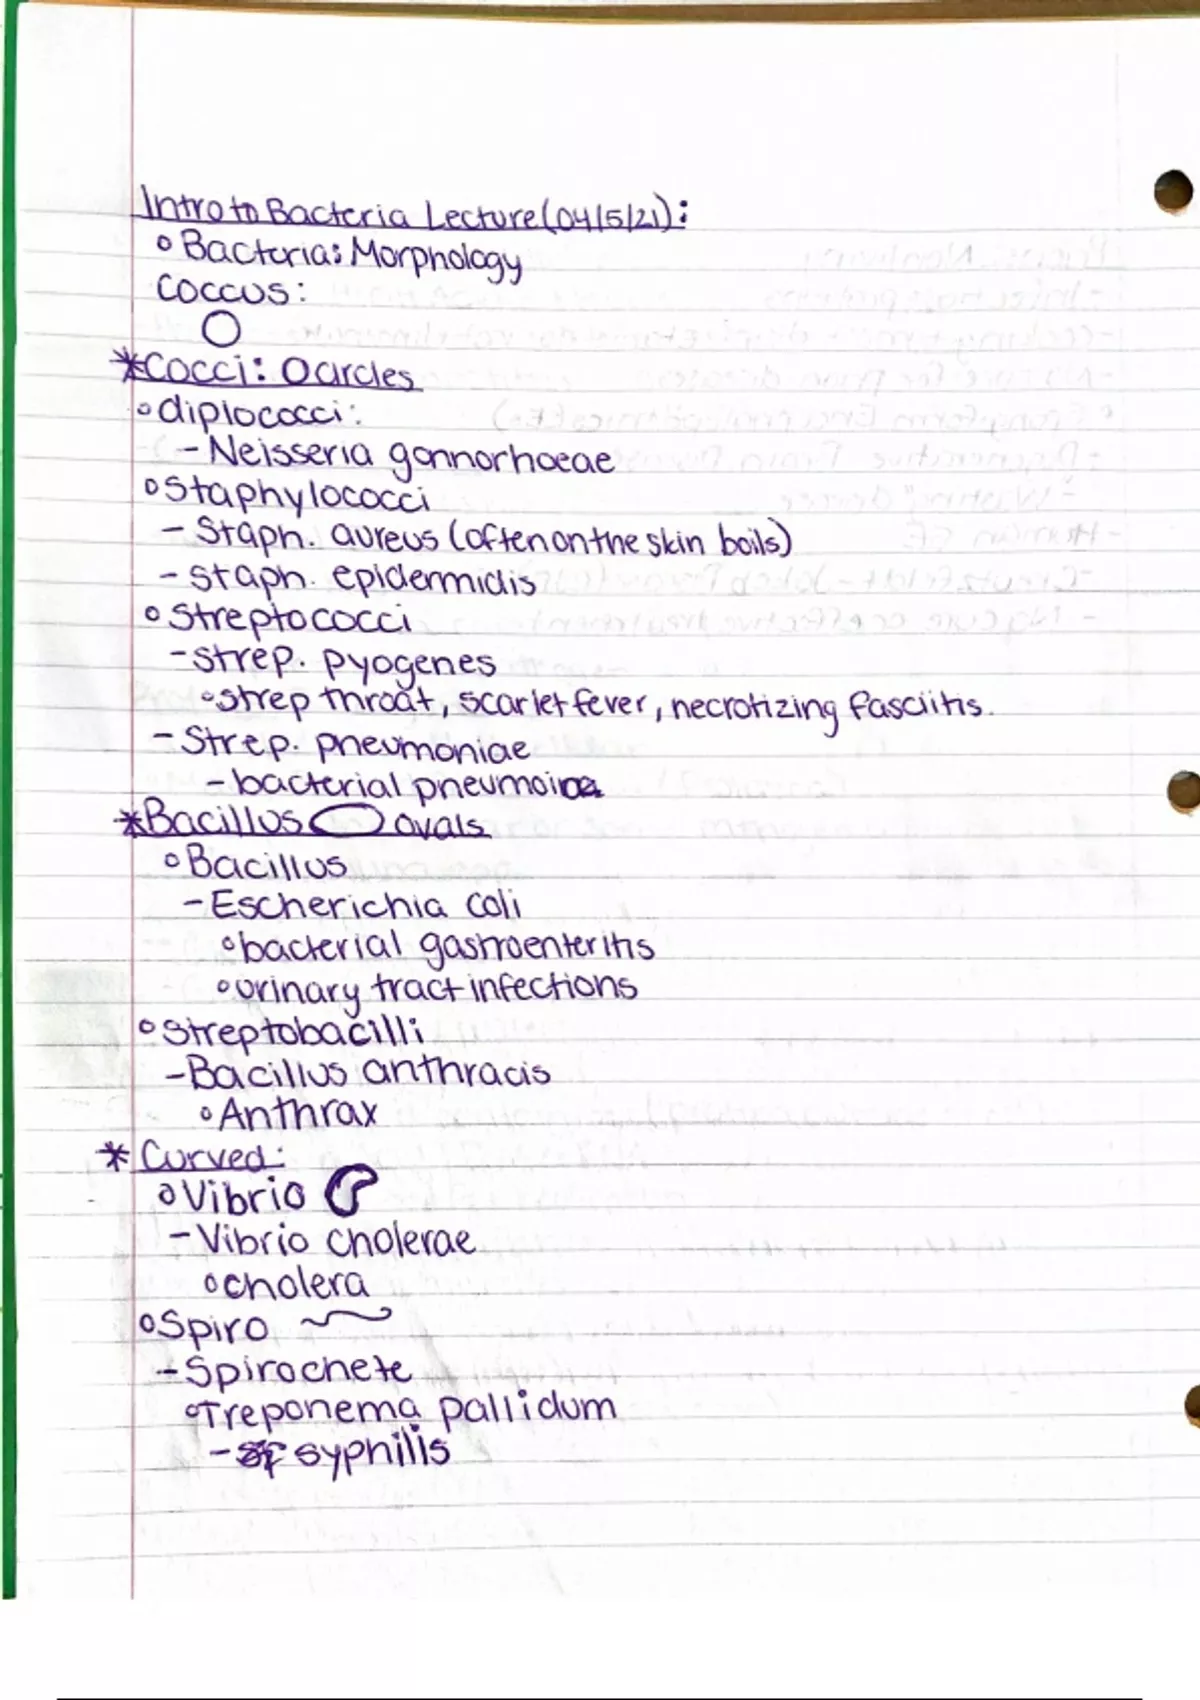 Intro to Bacteria Lecture (04/5/21):
○ Bacteria: Morphology
Coccus:
*Cocci: O circles
○ diplococci:
- Neisseria gonnorhoeae
○ Staphylococci
- Staph. aureus (often on the skin boils)
- staph. epidermidis
○ Streptococci
- strep. pyogenes
○ strep throat, scarlet fever, necrotizing fasciitis.
- Strep. pneumoniae
- bacterial pneumoina
*Bacillus ovals
○ Bacillus
- Escherichia coli
○ bacterial gastroenteritis
○ urinary tract infections
○ Streptobacilli
- Bacillus anthracis
○ Anthrax
* Curved:
○ Vibrio
- Vibrio cholerae
○ cholera
○ Spiro
- Spirochete
○ Treponema pallidum
- syphilis